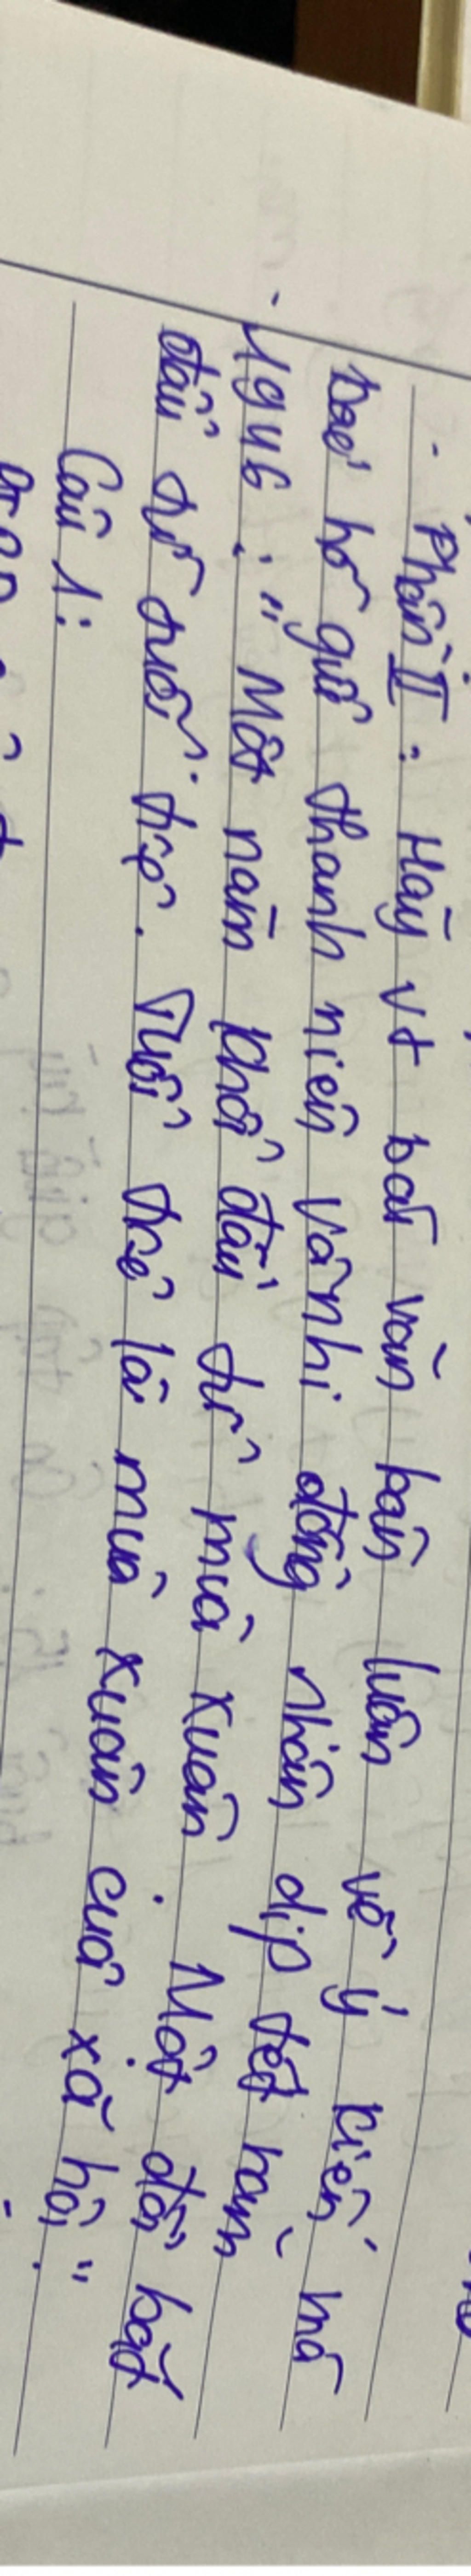 - Phần II: Hãy vt bài văn bàn luận về ý kiến mà
Bác hồ gửi thanh niên và nhi đồng nhân dịp tết năm
1946: "Một năm khởi đầu từ mùa xuân. Một đời bắt
đầu từ tuổi trẻ. Tuổi trẻ là mùa xuân của xã hội".
Câu 1: